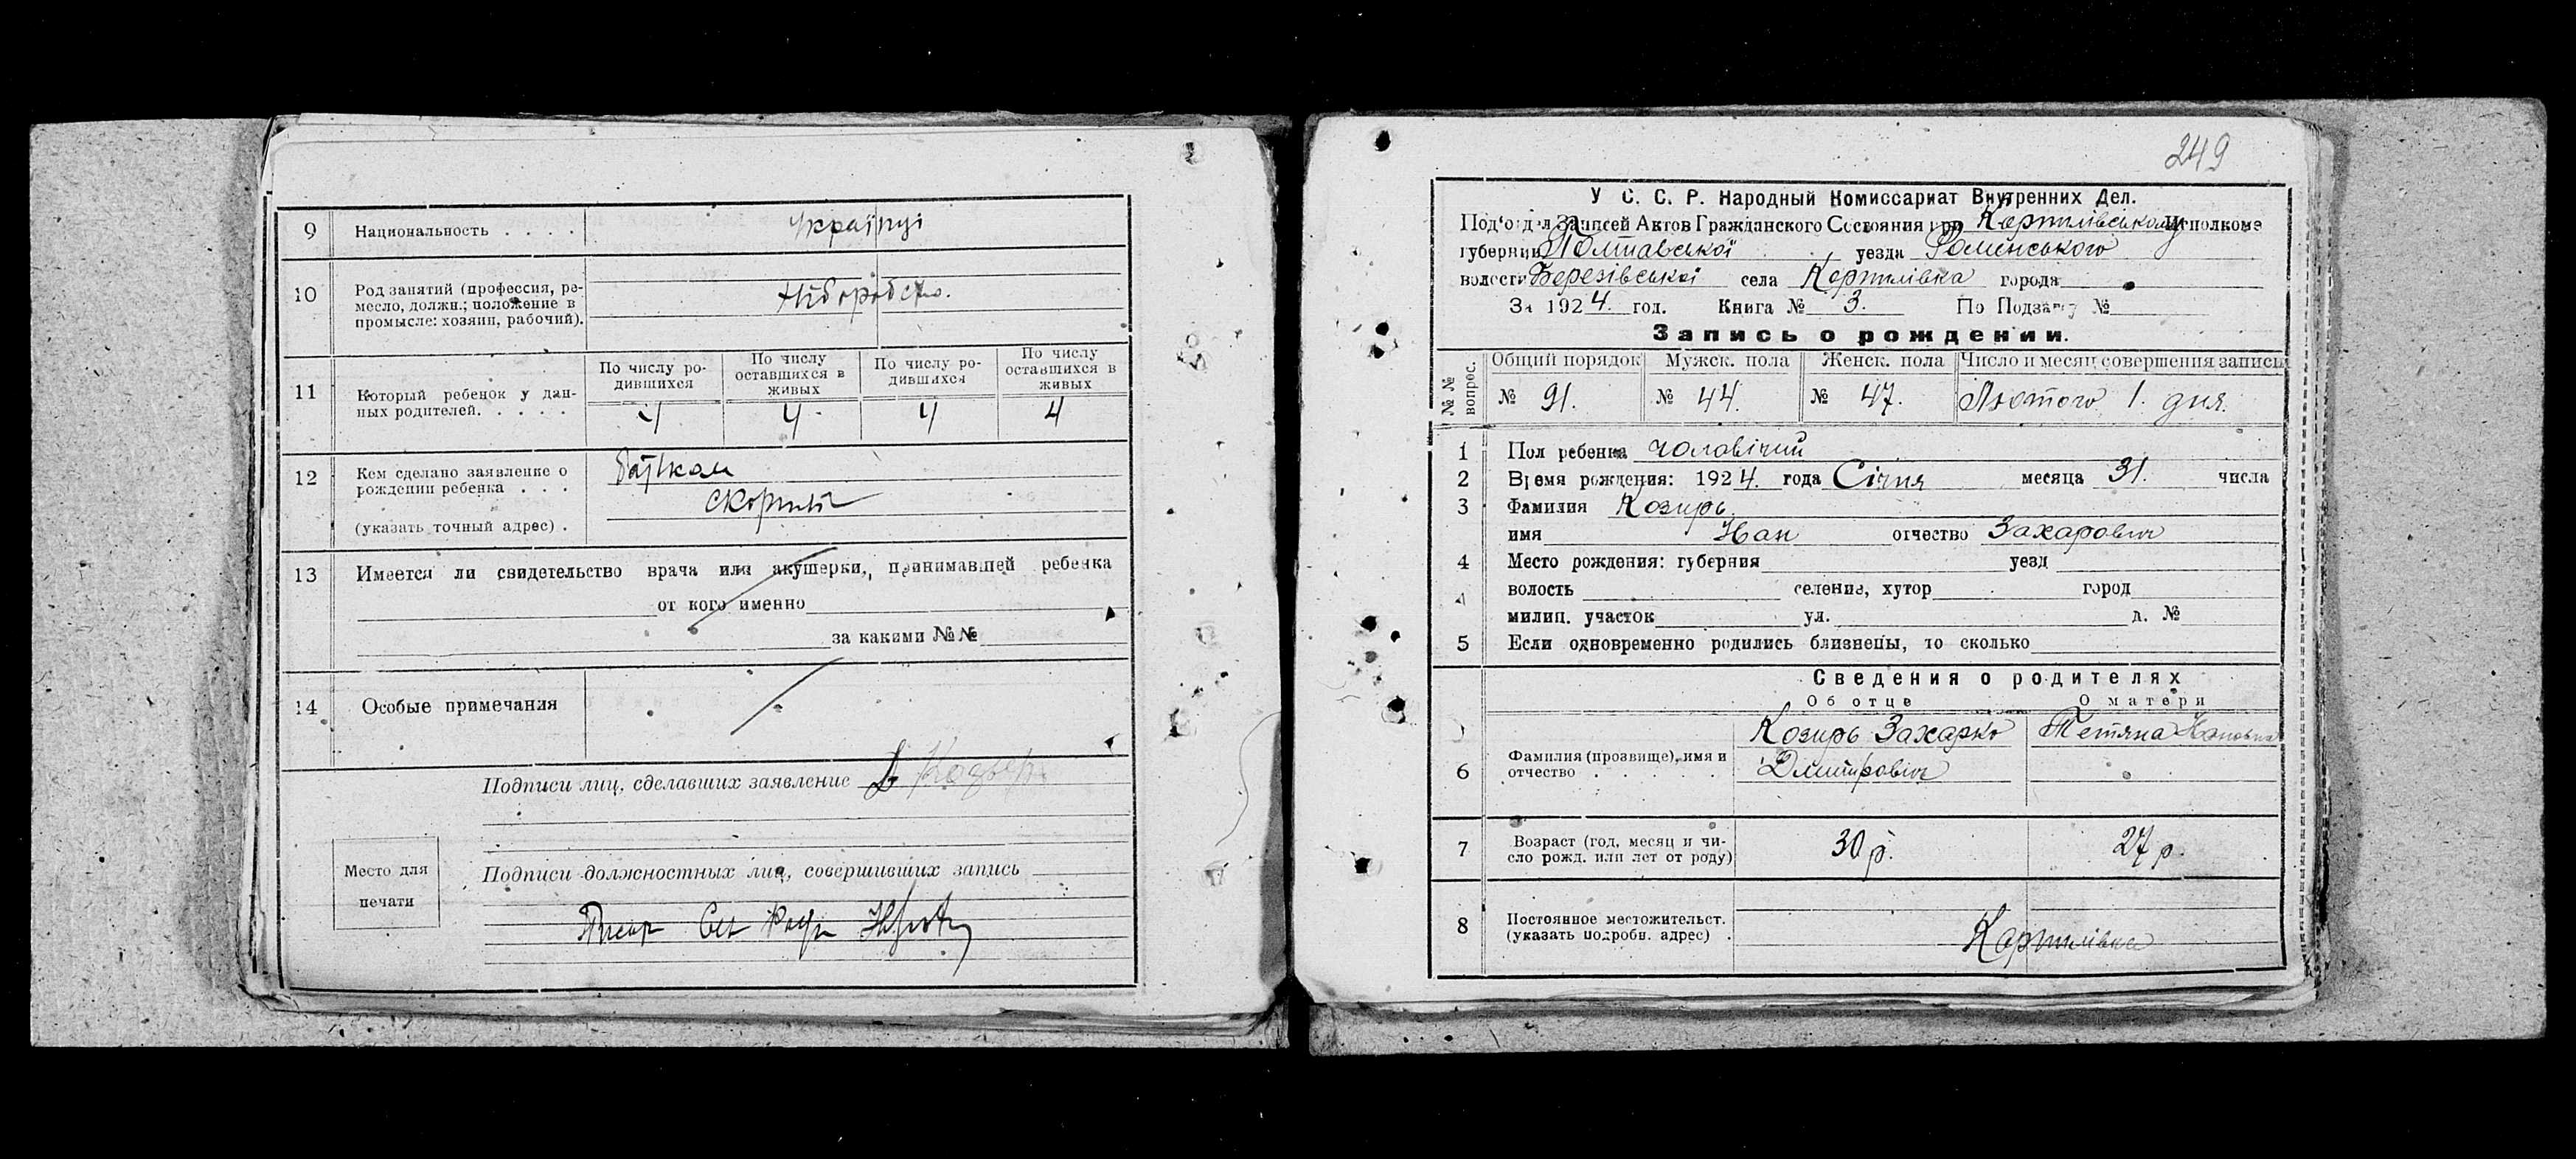 9 Национальность . . . . Українці
10 Род занятий (профессия, ре-
месло, должн.; положение в
промысле: хозяин, рабочий).
Хліборобство.
11 Который ребенок у дан-
ных родителей. . . . .
По числу ро-
дившихся
По числу
оставшихся в
живых
По числу ро-
дившихся
По числу
оставшихся в
живых
4 4 4 4
12 Кем сделано заявление о
рождении ребенка . . .
(указать точный адрес) .
Батьком
13 Имеется ли свидетельство врача или акушерки, принимавшей ребенка
от кого именно
за какими №№
14 Особые примечания
Подписи лиц, сделавших заявление
Место для
печати
Подписи должностных лиц, совершивших запись
249
У С. С. Р. Народный Комиссариат Внутренних Дел.
Под'отдел Записей Актов Гражданского Состояния при Исполкоме
губернии Полтавської уезда Роменського
волости Березівської села города
За 1924. год. Книга № 3. По Подзагу №
Запись о рождении.
№№ вопрос.
Общий порядок Мужск. пола Женск. пола Число и месяц совершения записи
№ 91. № 44. № 47. Лютого 1. дня.
1 Пол ребенка чоловічий
2 Время рождения: 1924. года Січня месяца 31. числа
3 Фамилия Козирь.
имя Іван отчество Захарович
4 Место рождения: губерния уезд
волость селение, хутор город
милиц. участок ул. д. №
5 Если одновременно родились близнецы, то сколько
Сведения о родителях
Об отце О матери
6 Фамилия (прозвище), имя и
отчество . . . . .
Козирь Захарко
Дмитрович
Тетяна Івановна
7 Возраст (год, месяц и чи-
сло рожд. или лет от роду)
30 р. 27 р.
8 Постоянное местожительст.
(указать подробн. адрес) .